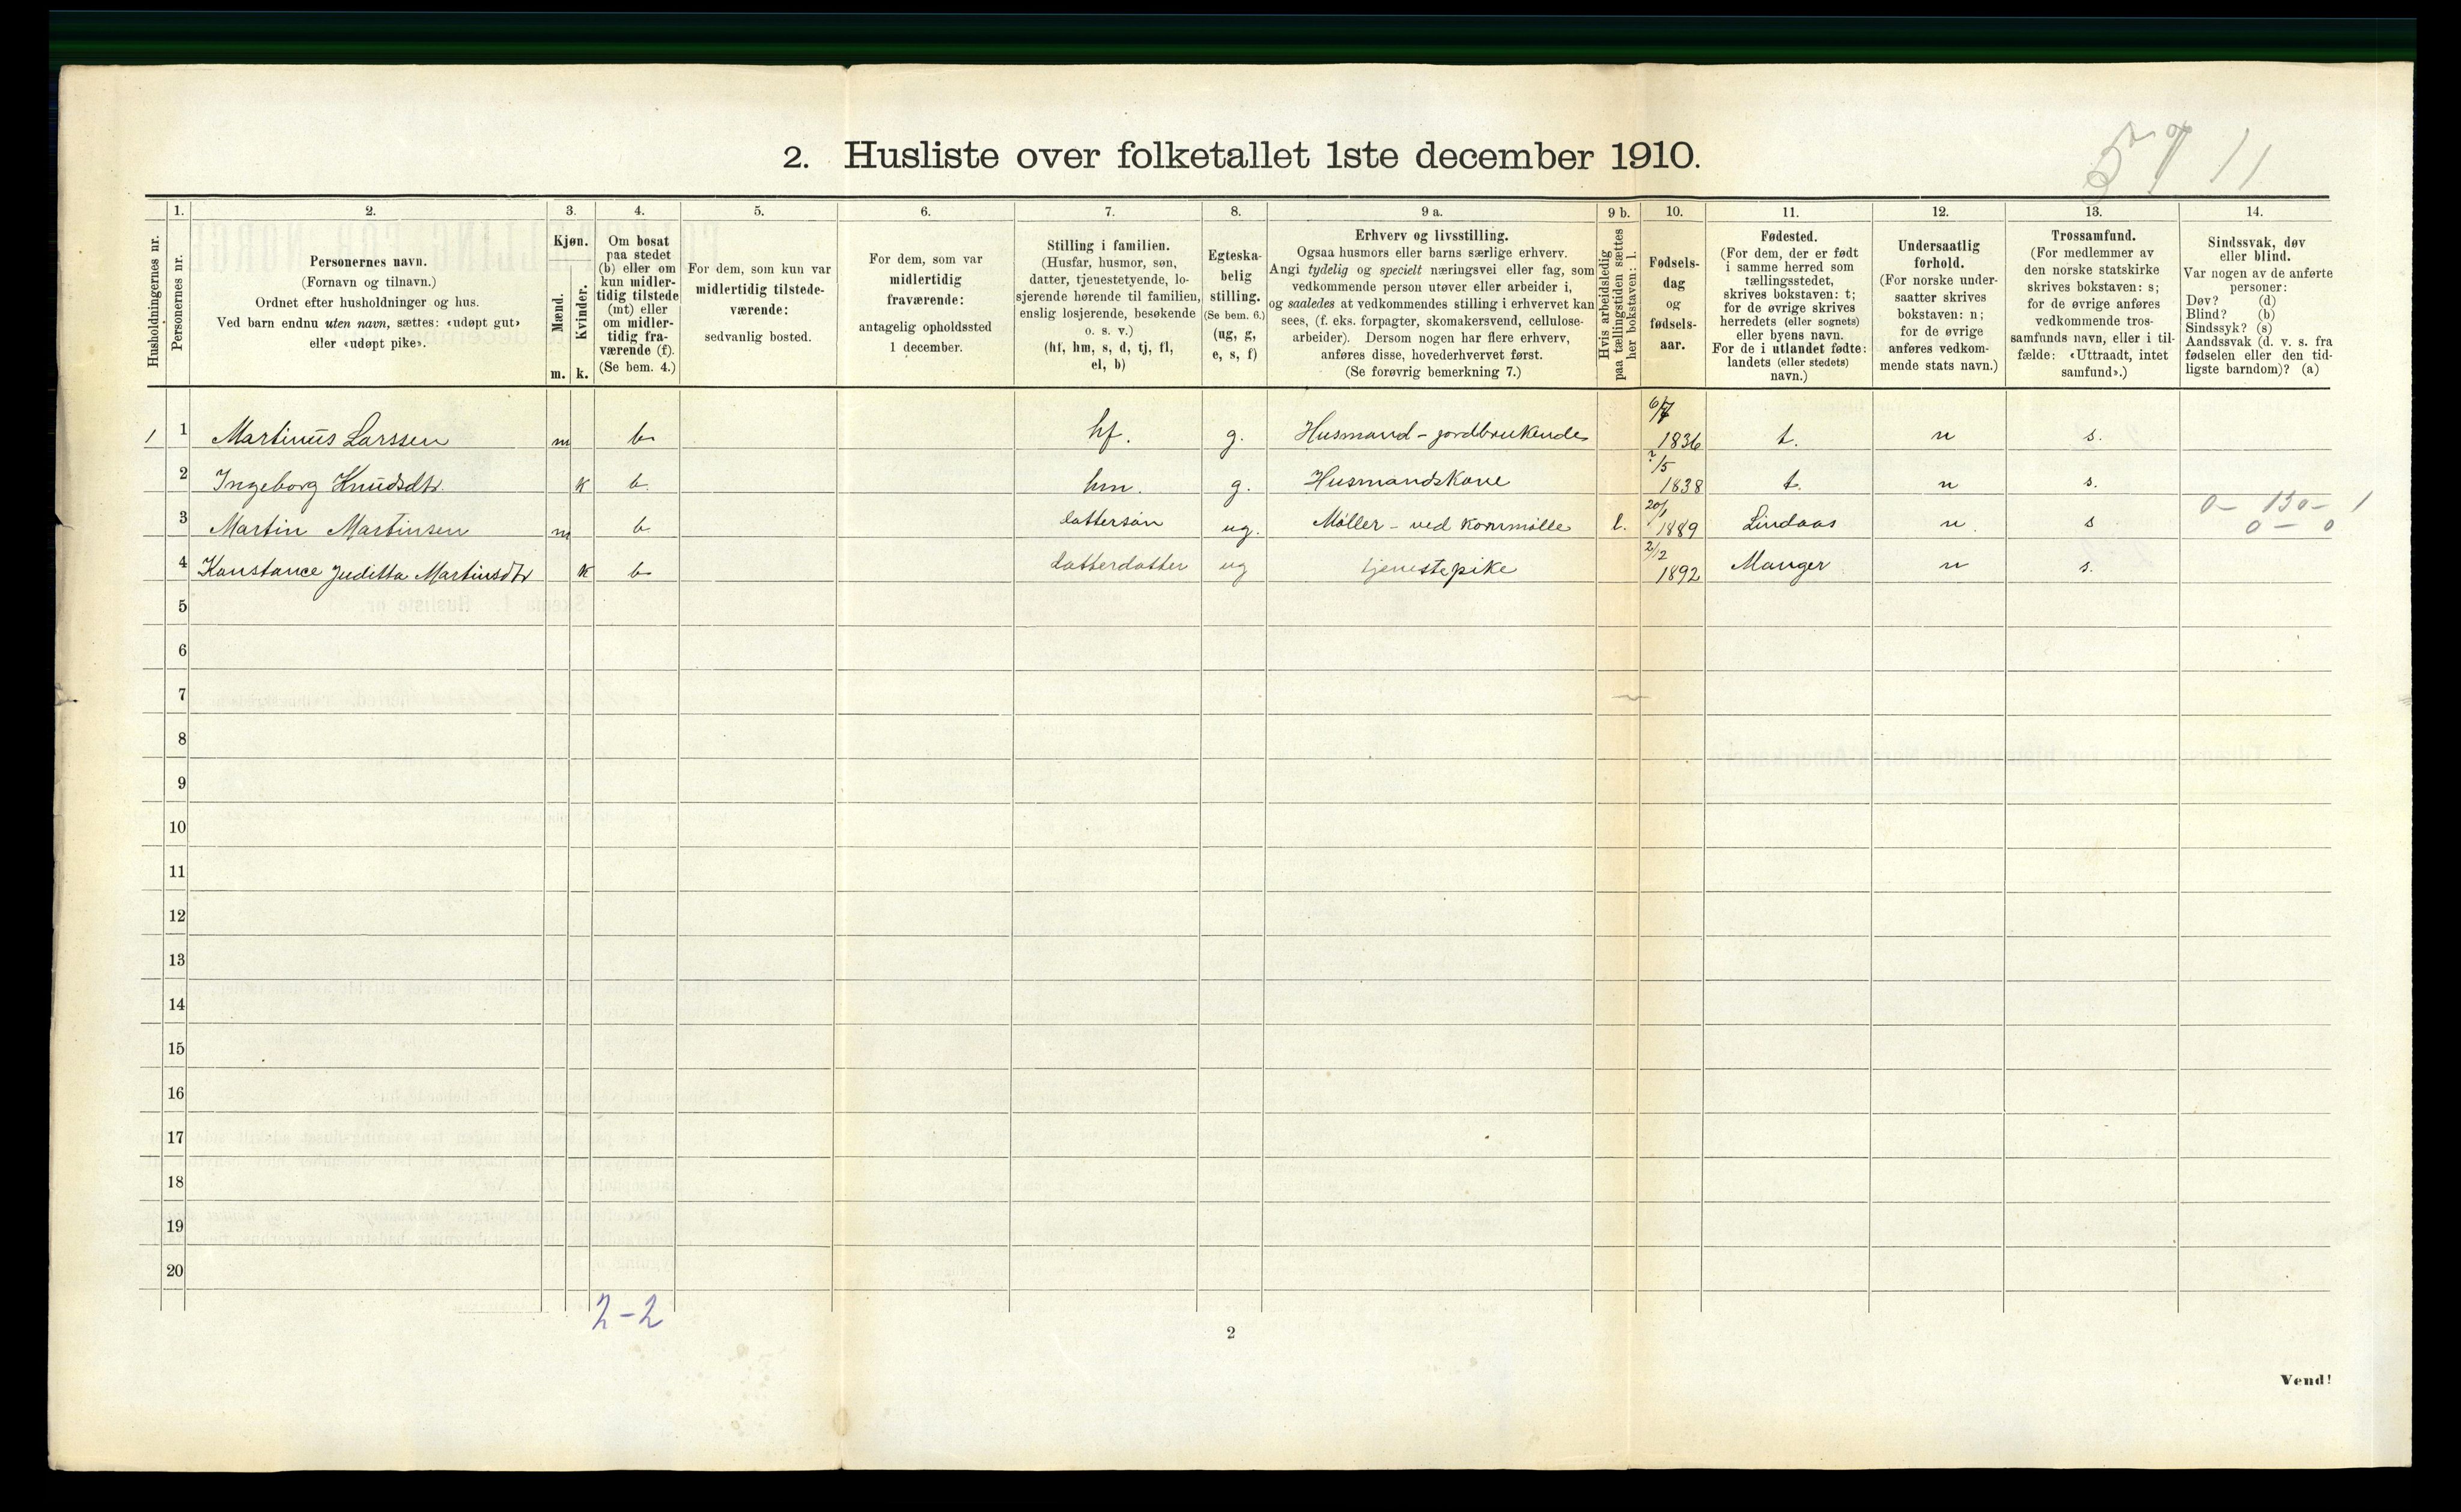 2. Husliste over folketallet 1ste december 1910.
11
Husholdningernes nr.
1.
Personernes nr.
2.
Personernes navn.
(Fornavn og tilnavn.)
Ordnet efter husholdninger og hus.
Ved barn endnu uten navn, sættes: «udøpt gut»
eller «udøpt pike».
3.
Kjøn.
Mænd.
Kvinder.
m. k.
4.
Om bosat
paa stedet
(b) eller om
kun midler-
tidig tilstede
(mt) eller
om midler-
tidig fra-
værende (f).
(Se bem. 4.)
5.
For dem, som kun var
midlertidig tilstede-
værende:
sedvanlig bosted.
6.
For dem, som var
midlertidig
fraværende:
antagelig opholdssted
1 december.
7.
Stilling i familien.
(Husfar, husmor, søn,
datter, tjenestetyende, lo-
sjerende hørende til familien,
enslig losjerende, besøkende
o. s. v.)
(hf, hm, s, d, tj, fl,
el, b)
8.
Egteska-
belig
stilling.
(Se bem. 6.)
(ug, g,
e, s, f)
9 a.
Erhverv og livsstilling.
Ogsaa husmors eller barns særlige erhverv.
Angi tydelig og specielt næringsvei eller fag, som
vedkommende person utøver eller arbeider i,
og saaledes at vedkommendes stilling i erhvervet kan
sees, (f. eks. forpagter, skomakersvend, cellulose-
arbeider). Dersom nogen har flere erhverv,
anføres disse, hovederhvervet først.
(Se forøvrig bemerkning 7.)
9 b.
Hvis arbeidsledig
paa tællingstiden sættes
her bokstaven: l.
10.
Fødsels-
dag
og
fødsels-
aar.
11.
Fødested.
(For dem, der er født
i samme herred som
tællingsstedet,
skrives bokstaven: t;
for de øvrige skrives
herredets (eller sognets)
eller byens navn.
For de i utlandet fødte:
landets (eller stedets)
navn.)
12.
Undersaatlig
forhold.
(For norske under-
saatter skrives
bokstaven: n;
for de øvrige
anføres vedkom-
mende stats navn.)
13.
Trossamfund.
(For medlemmer av
den norske statskirke
skrives bokstaven: s;
for de øvrige anføres
vedkommende tros-
samfunds navn, eller i til-
fælde: «Uttraadt, intet
samfund».)
14.
Sindssvak, døv
eller blind.
Var nogen av de anførte
personer:
Døv? (d)
Blind? (b)
Sindssyk? (s)
Aandssvak (d. v. s. fra
fødselen eller den tid-
ligste barndom)? (a)
1 1 Martinus Larssen m b hf. g. Husmand - jordbrukende 6/7 1836 t. n s.
2 Ingeborg Knudsdtr. k b. hm. g. Husmandskone 7/5 1838 t. n s.
3 Martin Martinsen m b dattersøn ug. Møller - ved kornmølle l. 20/1 1889 Lindaas n. s 0 - 130 - 1
0 - 0
4 Konstance Juditta Martinsdtr k b datterdatter ug tjenestepike 2/12 1892 Manger n s.
5
6
7
8
9
10
11
12
13
14
15
16
17
18
19
20
2-2
2
Vend!